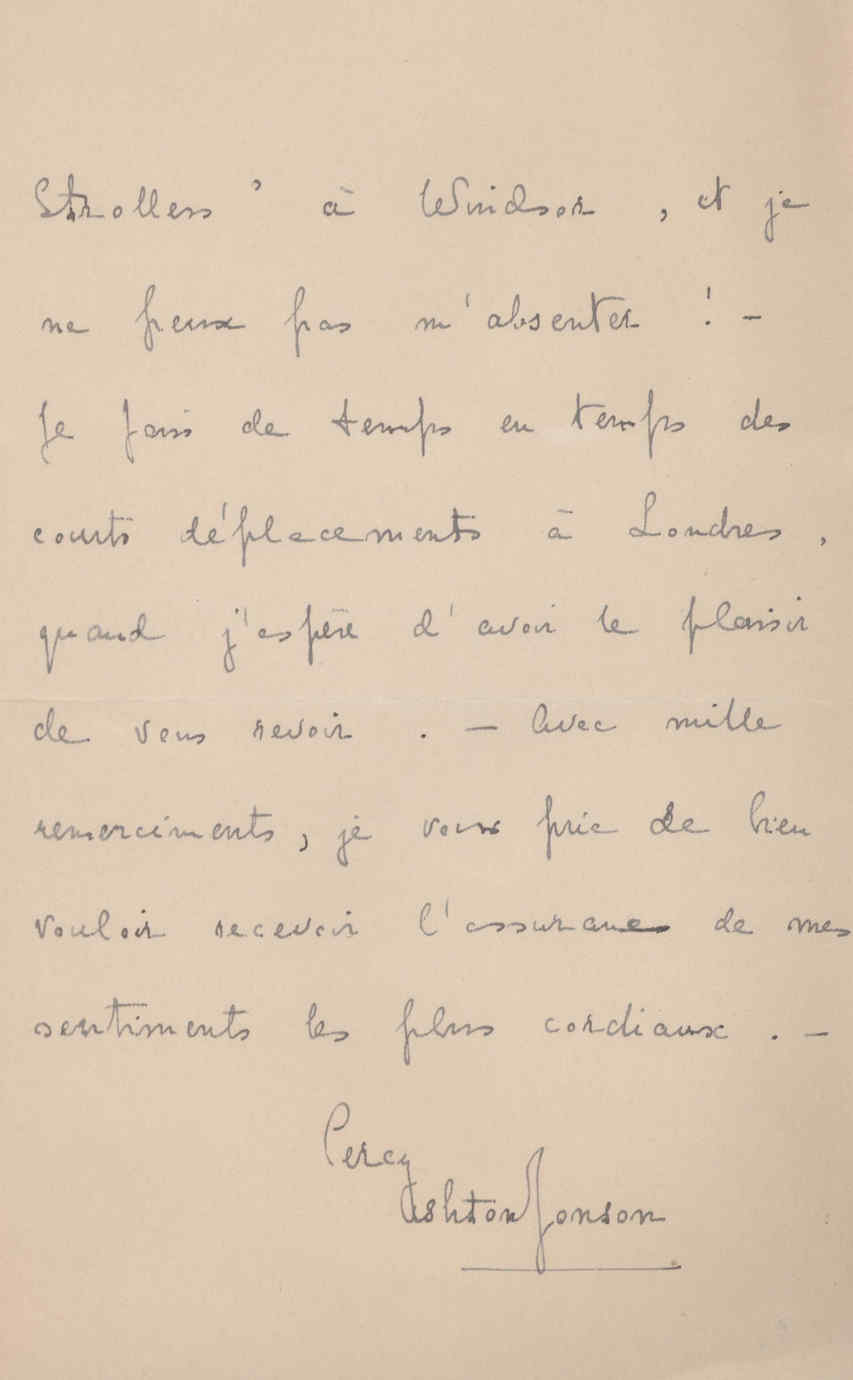 Strollers' à Windsor, et je
ne peux pas m'absenter ! -
Je fais de temps en temps des
courts déplacements à Londres,
quand j'espère d'avoir le plaisir
de vous revoir. — Avec mille
remerciments, je vous prie de bien
vouloir recevoir l'assurance de mes
sentiments les plus cordiaux. -
Percy
Ashton Jonson